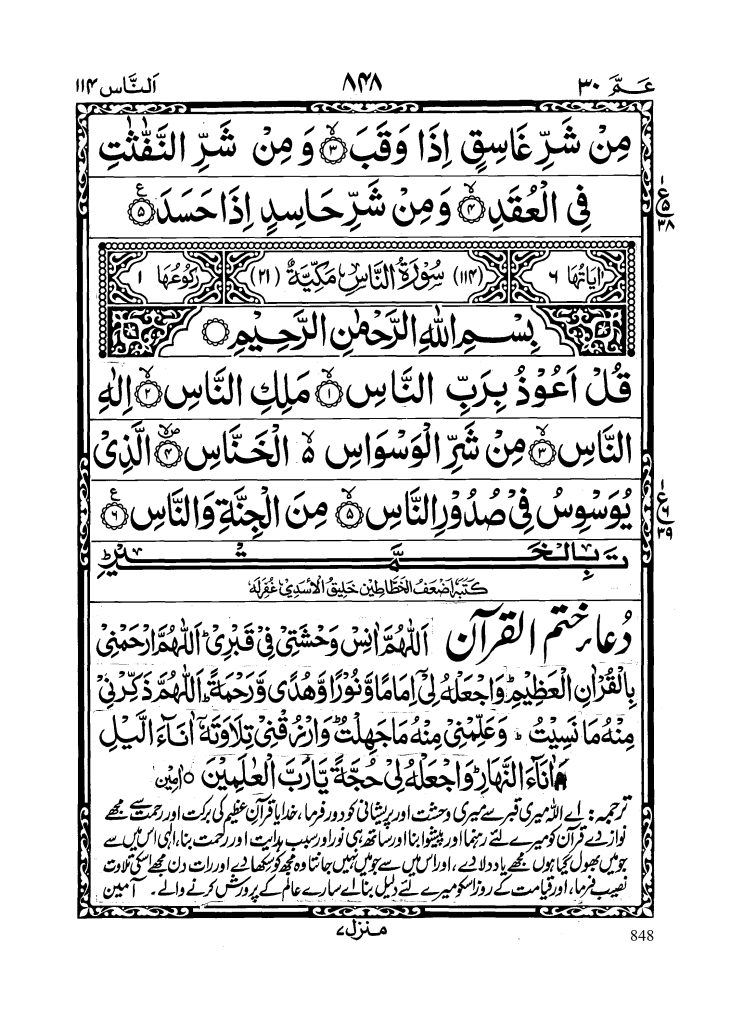 عَمَّ ۳۰ ۸۴۸ اَلنَّاس ۱۱۴
مِنْ شَرِّ غَاسِقٍ اِذَا وَقَبَ ۙ﴿۳﴾ وَ مِنْ شَرِّ النَّفّٰثٰتِ
فِی الْعُقَدِ ۙ﴿۴﴾ وَ مِنْ شَرِّ حَاسِدٍ اِذَا حَسَدَ ﴿۵﴾ ع
ع ۱ ۵ ۳۸
اٰیَاتُهَا ۶ (۱۱۴) سُوْرَةُ النَّاسِ مَكِّیَّةٌ (۲۱) رُكُوْعُهَا ۱
بِسْمِ اللهِ الرَّحْمٰنِ الرَّحِیْمِ ○
قُلْ اَعُوْذُ بِرَبِّ النَّاسِ ۙ﴿۱﴾ مَلِكِ النَّاسِ ۙ﴿۲﴾ اِلٰهِ
النَّاسِ ۙ﴿۳﴾ مِنْ شَرِّ الْوَسْوَاسِ ۵ الْخَنَّاسِ ﴿۴﴾ الَّذِیْ
یُوَسْوِسُ فِیْ صُدُوْرِ النَّاسِ ۙ﴿۵﴾ مِنَ الْجِنَّةِ وَ النَّاسِ ﴿۶﴾ ع
ع ۱ ۶ ۳۹
تَمَّتْ بِالْخَیْرِ
كَتَبَهٗ اَضْعَفُ الْخَطَّاطِیْن خَلِیْقُ الْاَسَدِیْ غُفِرَلَهٗ
دُعَاءِ ختم القرآن اَللّٰهُمَّ اٰنِسْ وَحْشَتِیْ فِیْ قَبْرِیْ ؕ اَللّٰهُمَّ ارْحَمْنِیْ
بِالْقُرْاٰنِ الْعَظِیْمِ ؕ وَاجْعَلْهُ لِیْۤ اِمَامًا وَّ نُوْرًا وَّ هُدًی وَّ رَحْمَةً ؕ اَللّٰهُمَّ ذَكِّرْنِیْ
مِنْهُ مَا نَسِیْتُ ؕ وَعَلِّمْنِیْ مِنْهُ مَا جَهِلْتُ ؕ وَارْزُقْنِیْ تِلَاوَتَهٗۤ اٰنَآءَ الَّیْلِ
وَاٰنَآءَ النَّهَارِ ؕ وَاجْعَلْهُ لِیْ حُجَّةً یَّا رَبَّ الْعٰلَمِیْنَ ۵ اٰمِیْن
ترجمہ: اے اللہ میری قبر سے میری وحشت اور پریشانی کو دور فرما، خدایا قرآنِ عظیم کی برکت اور رحمت سے مجھے
نواز دے قرآن کو میرے لئے رہنما اور پیشوا بنا اور ساتھ ہی نور اور سببِ ہدایت اور رحمت بنا، الٰہی اس میں سے
جو میں بھول گیا ہوں مجھے یاد دلا دے، اور اس میں سے جو میں نہیں جانتا وہ مجھ کو سکھا دے اور رات دن مجھے اسکی تلاوت
نصیب فرما، اور قیامت کے روز اسکو میرے لئے دلیل بنا اے سارے عالم کے پرورش کرنے والے۔ آمین
منزل ۷
848